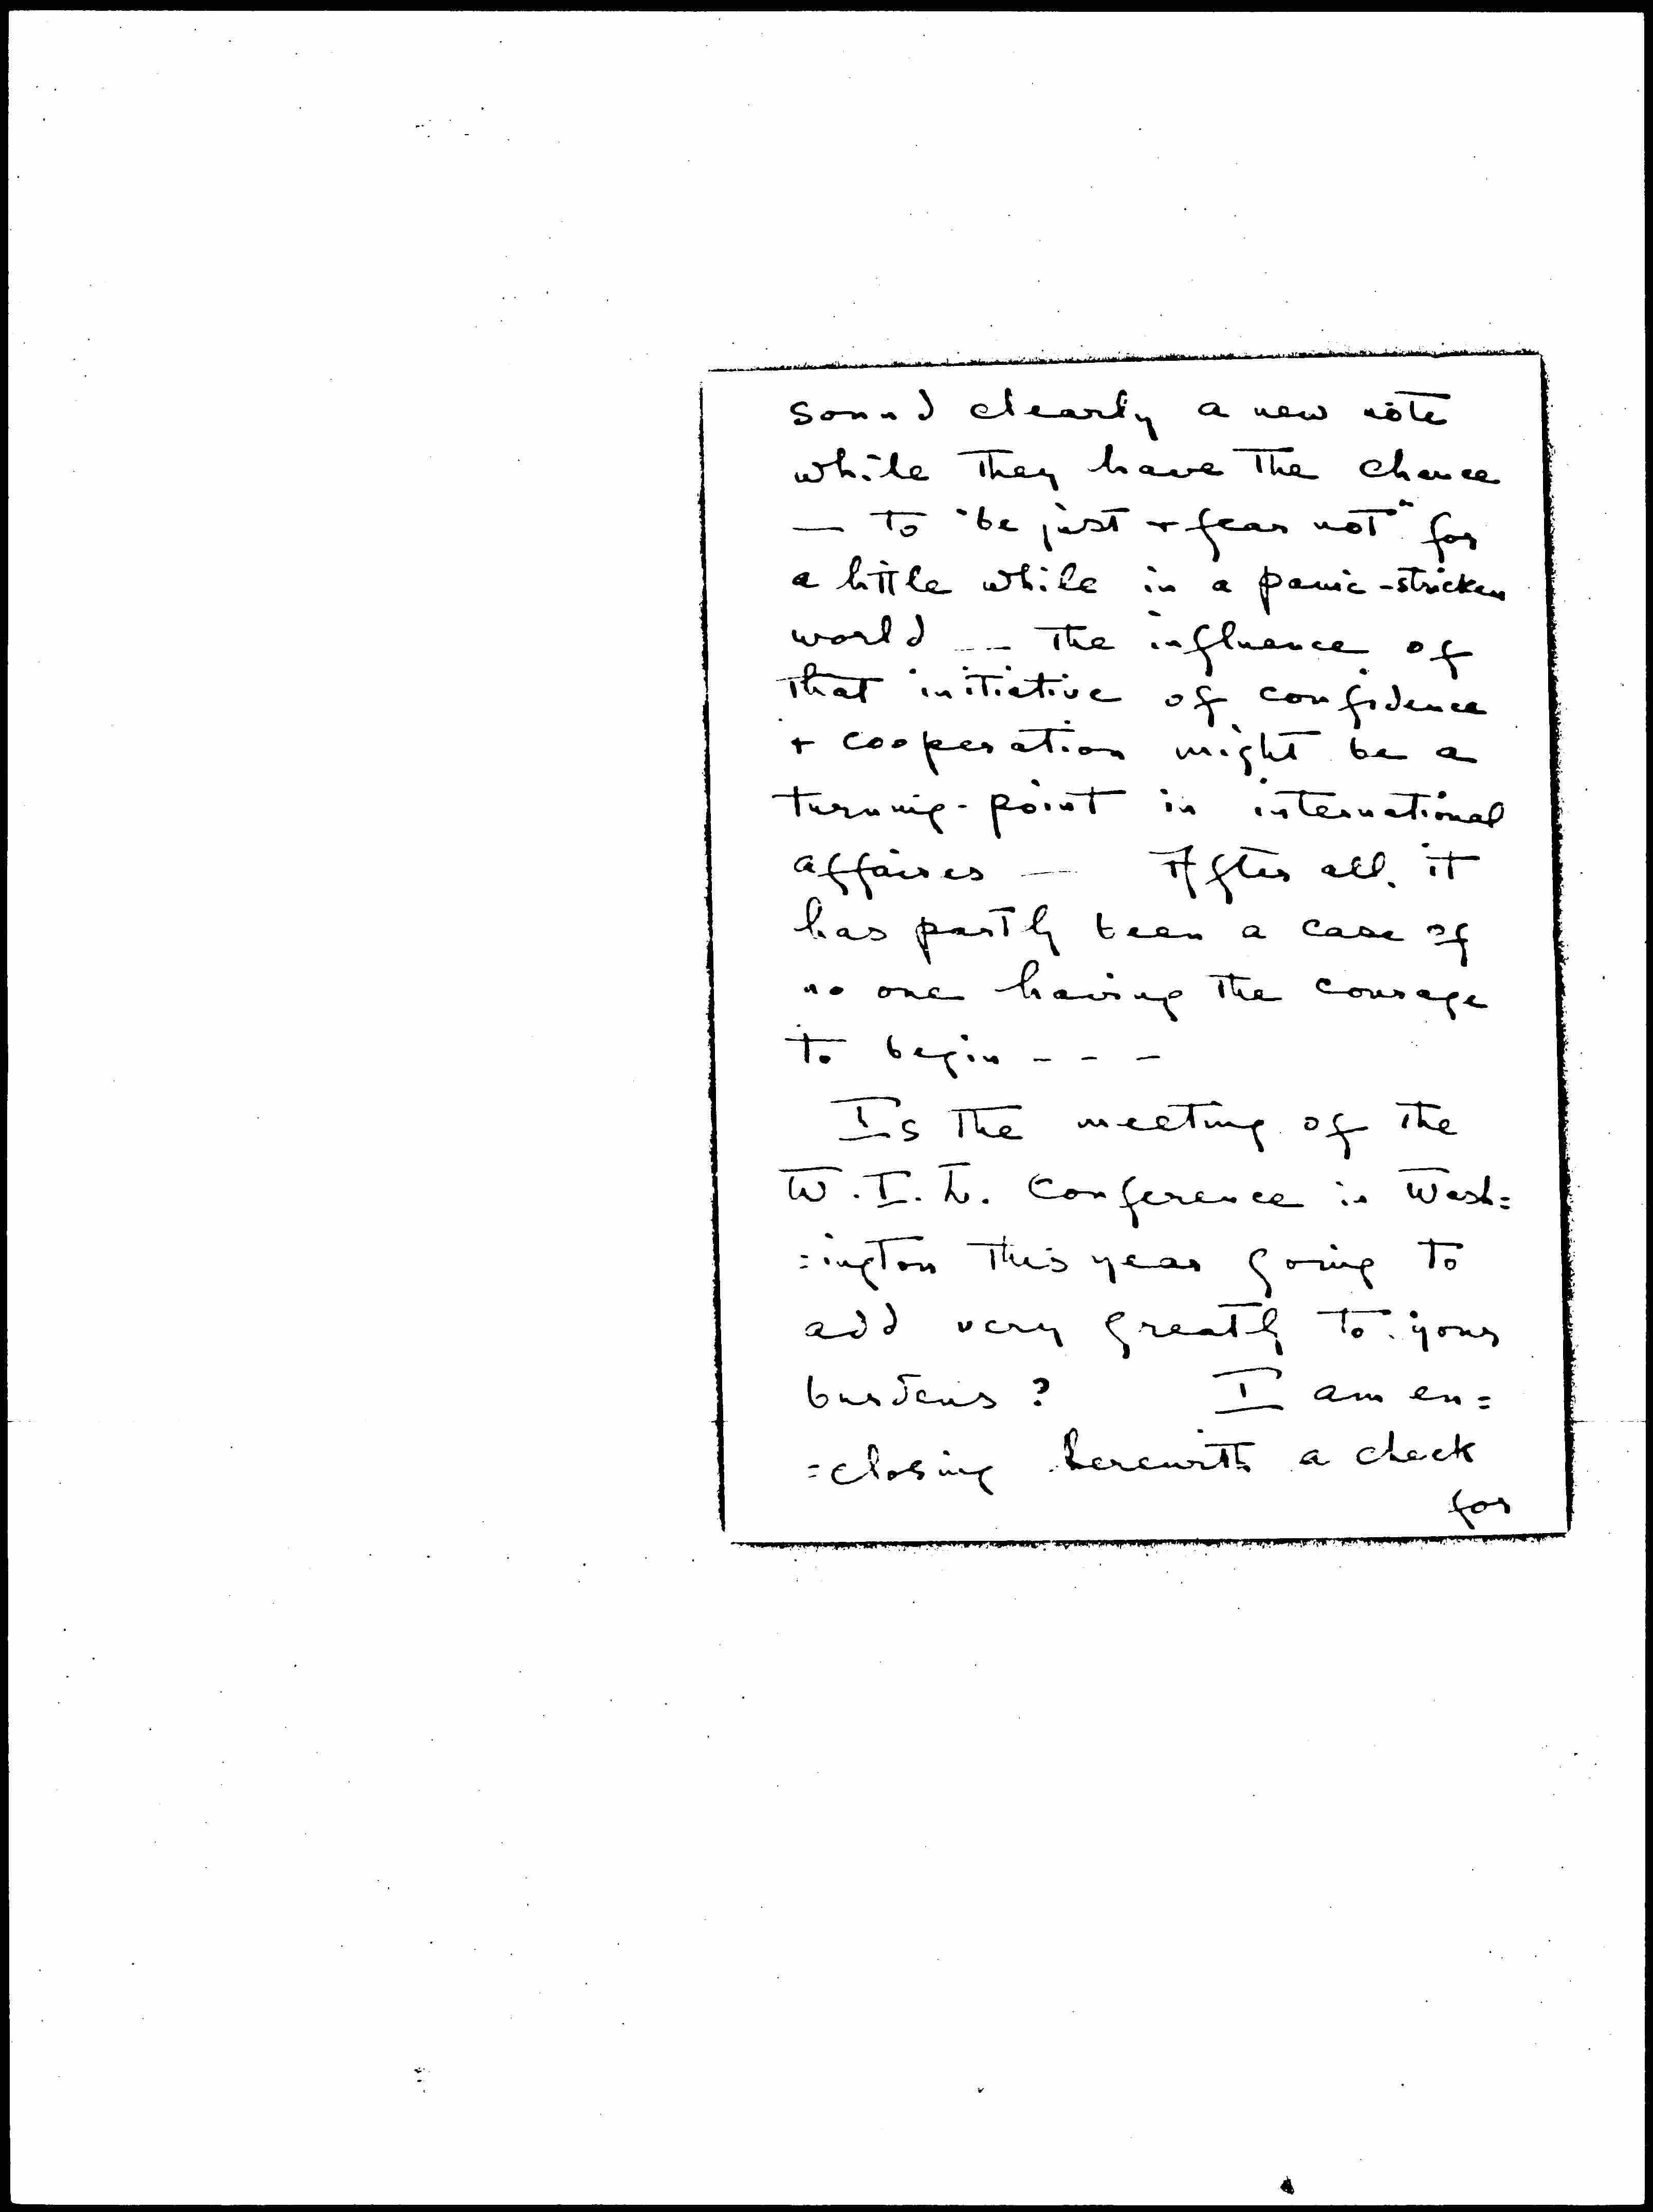 sound clearly a new note
while they have the chance
— to "be just + fear not" for
a little while in a panic-stricken
world -- the influence of
that initiative of confidence
+ cooperation might be a
turning-point in international
affaires — After all, it
has partly been a case of
no one having the courage
to begin - - -
Is the meeting of the
W.I.L. Conference in Wash=
=ington this year going to
add very greatly to your
burdens? I am en=
=closing herewith a check
for